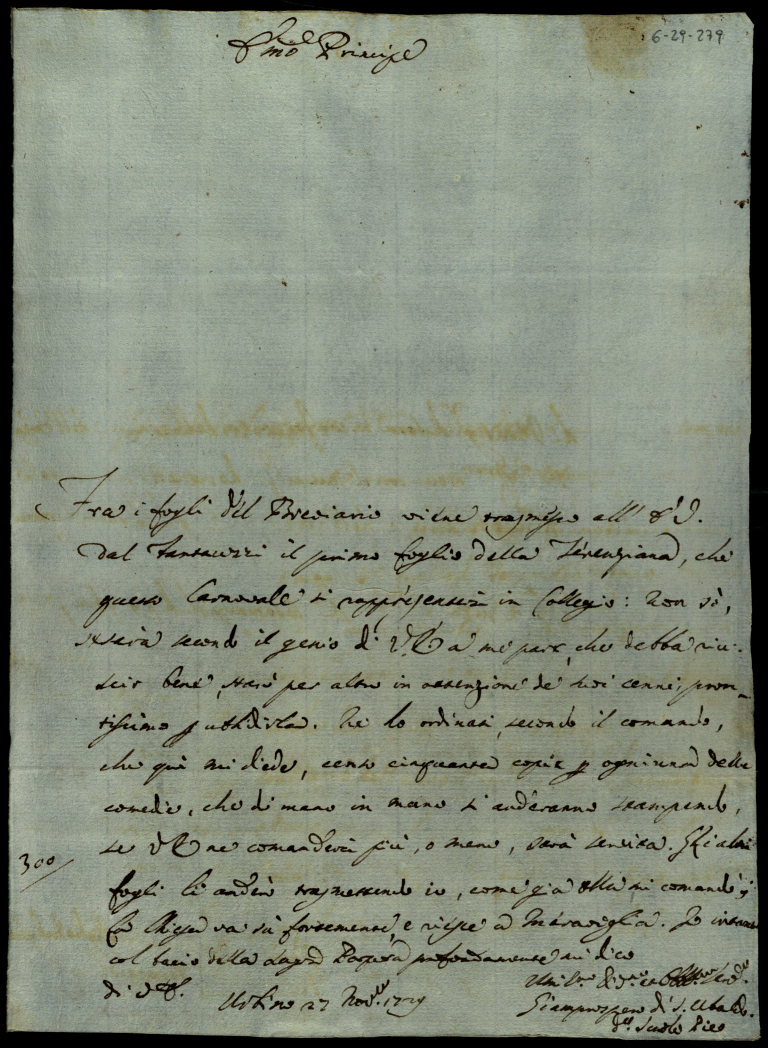 6-29-279
Emo Principe
Fra i fogli del Breviario viene trasmesso all' E. V.
dal Fantauzzi il primo foglio della Terenziana, che
questo Carnovale si rappresenterà in Collegio: non sò,
se sarà secondo il genio di V. E. a me pare, che debba riu-
scir bene, starò per altro in attenzione de' suoi cenni, pron-
tissimo p ubbidirla. Ne ho ordinati, secondo il comando,
che qui mi diede, cento cinquanta copie p ogniuna delle
comedie, che di mano in mano si anderanno stampando,
se V. E. ne comanderà più, o meno, sarà servita. Gli altri
300/
fogli li anderò trasmettendo io, come già ella mi comandò:
la Chiesa va sù fortemente, e riesce a meraviglia. Io intanto
col bacio della Sagra Porpora profondamente mi dico
di V. E.
Urbino 27 Nov. 1729
Giamprospero di S. Ubaldo
delle Scuole Pie